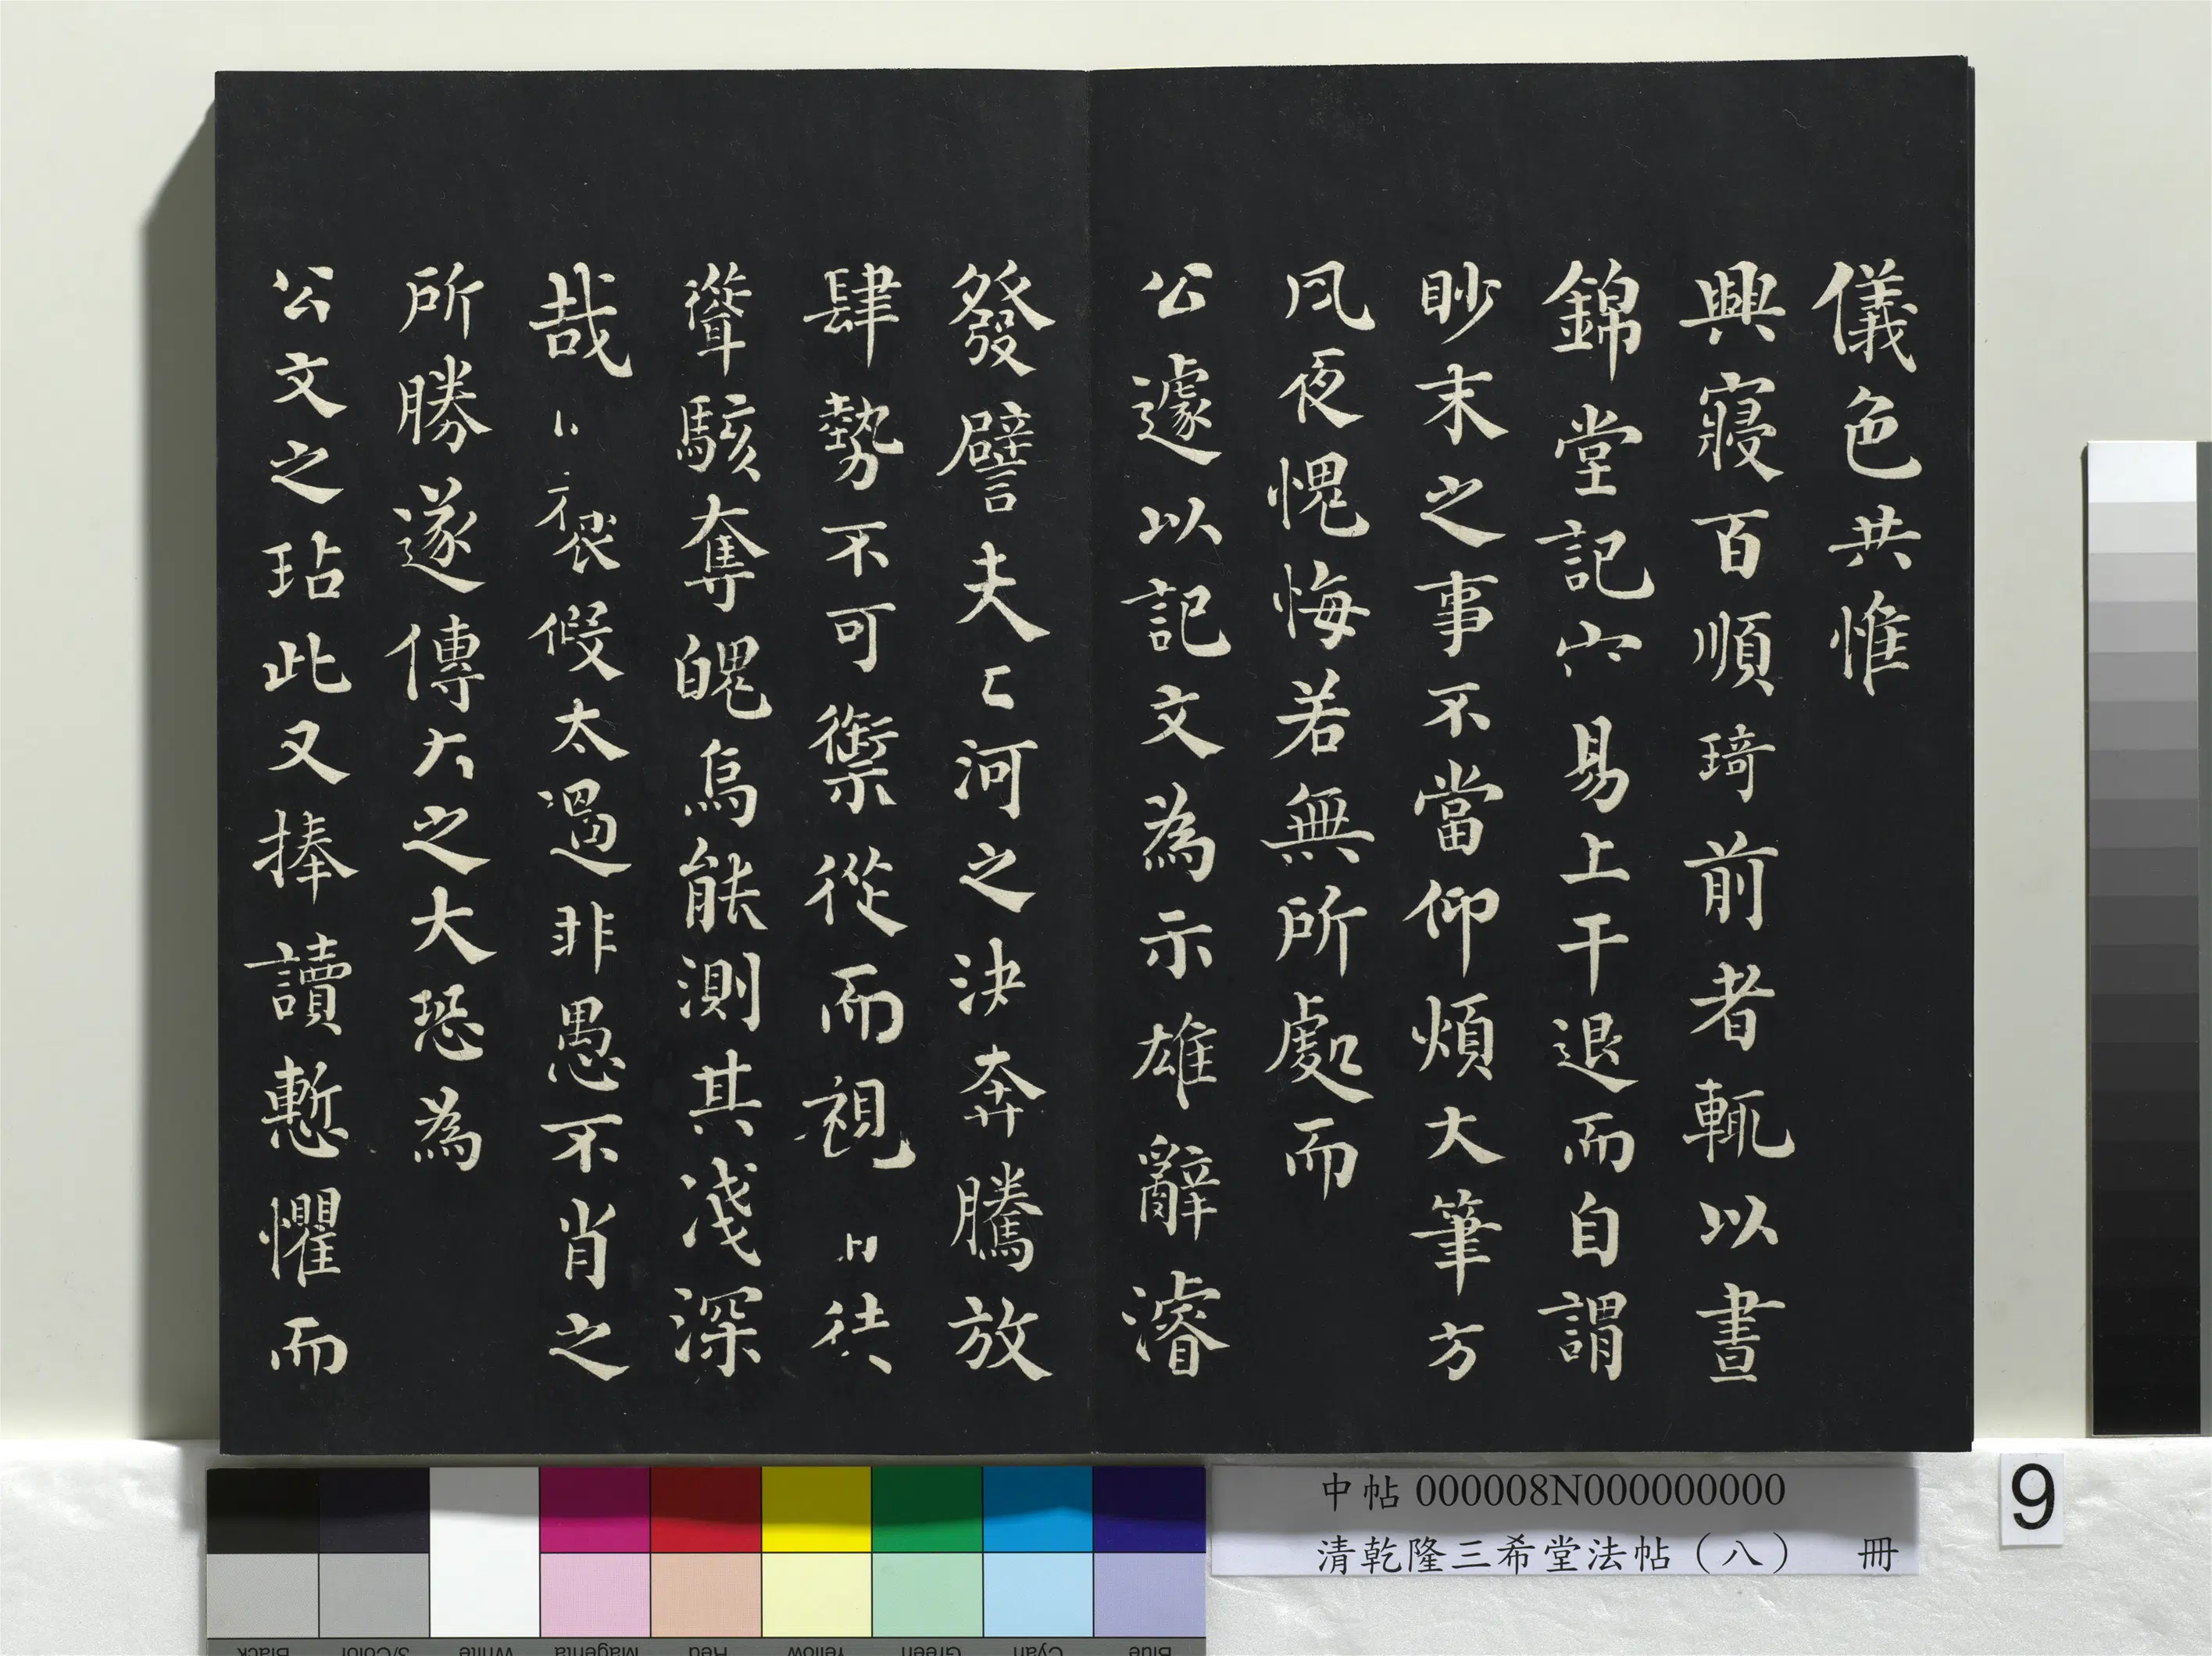 儀色共惟
興寢百順琦前者輒以晝
錦堂記易上干退而自謂
眇末之事不當仰煩大筆方
夙夜愧悔若無所處而
公遽以記文為示雄辭濬
發譬夫河之決奔騰放
肆勢不可禦從而視徒
聳駭奪魄烏能測其淺深
哉假太過非愚不肖之
所勝遂傳之大恐為
公文之玷此又捧讀慙懼而
中帖 000008N000000000
清乾隆三希堂法帖（八） 冊
9
Black
3/Color
White
Magenta
Red
Yellow
Green
Cyan
Blue